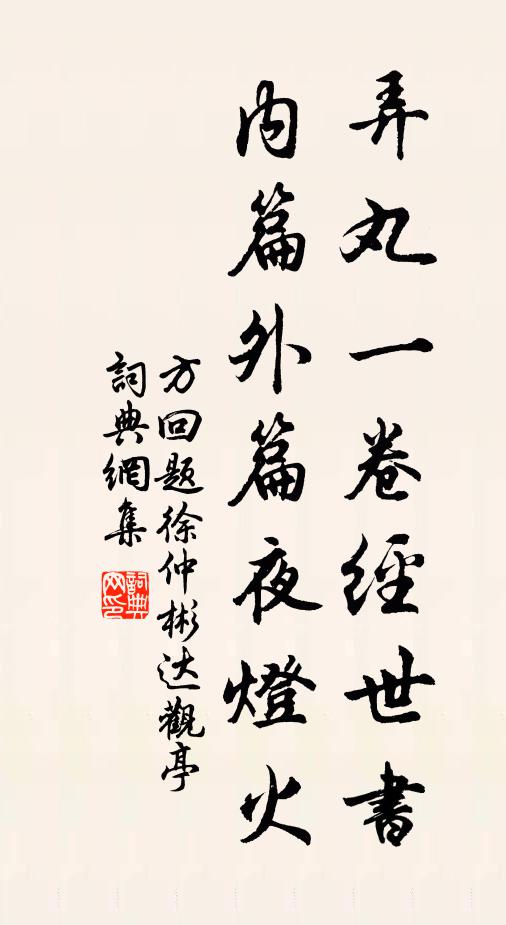 弄丸一卷經世書
内篇外篇夜燈火
方回題徐仲彬达觀亭
詞典網集
詞典網印